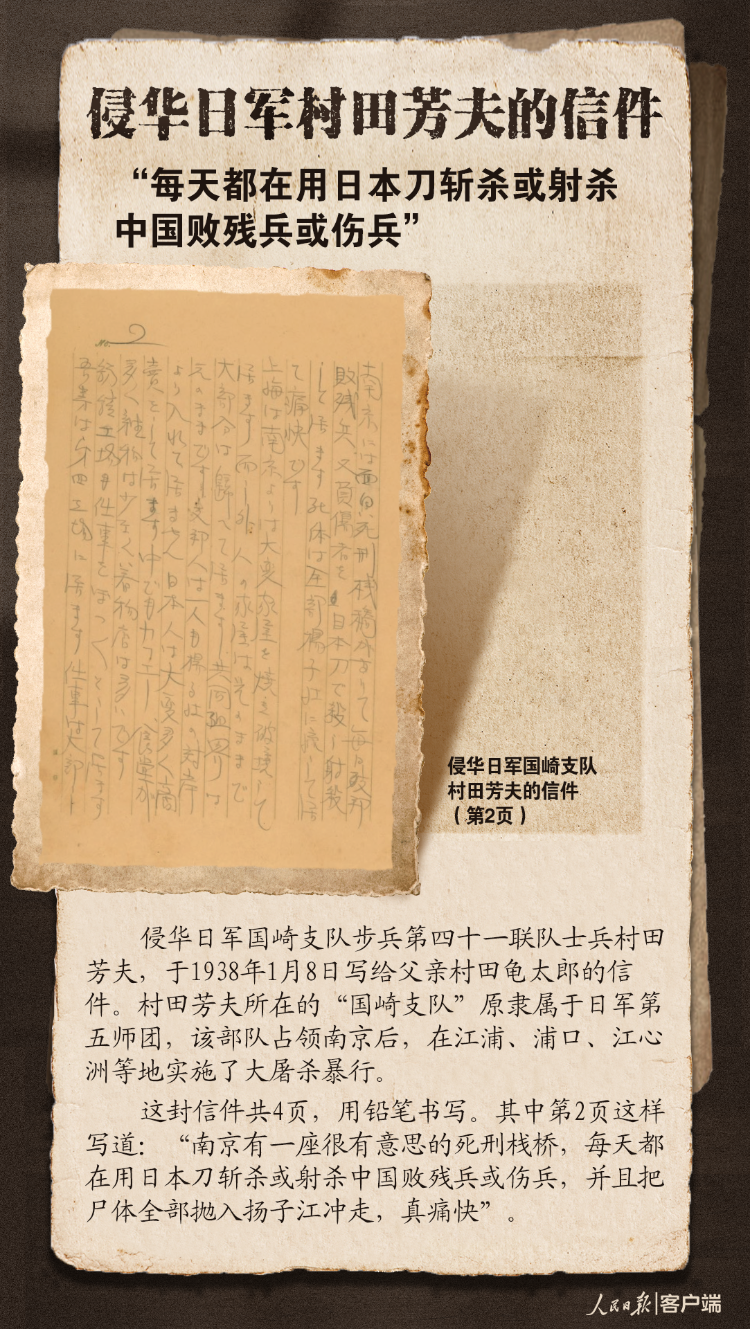 侵华日军村田芳夫的信件
“每天都在用日本刀斩杀或射杀
中国败残兵或伤兵”
2
南京には面白い死刑桟橋があつて毎日支那
敗残兵又負傷者を日本刀で殺し射殺
して居ます死体は全部揚子江に流して居
て痛快です
上海は南京よりは大変家屋を焼き破壊して
居ます而し外人の家屋は元のままで
大部分は歸へて居ます共同租界は
元のままです支那人は一人も揚子江の対岸
より入れて居ません日本人は大変多く商
賣をして居ます中でもカフエー食堂が
多く雑物は少なく着物店は多いです
工場も仕事をぼつ〱やつて居ます
工場に居ます仕事は
侵华日军国崎支队
村田芳夫的信件
（第2页）
侵华日军国崎支队步兵第四十一联队士兵村田
芳夫，于1938年1月8日写给父亲村田龟太郎的信
件。村田芳夫所在的“国崎支队”原隶属于日军第
五师团，该部队占领南京后，在江浦、浦口、江心
洲等地实施了大屠杀暴行。
这封信件共4页，用铅笔书写。其中第2页这样
写道：“南京有一座很有意思的死刑栈桥，每天都
在用日本刀斩杀或射杀中国败残兵或伤兵，并且把
尸体全部抛入扬子江冲走，真痛快”。
人民日报|客户端